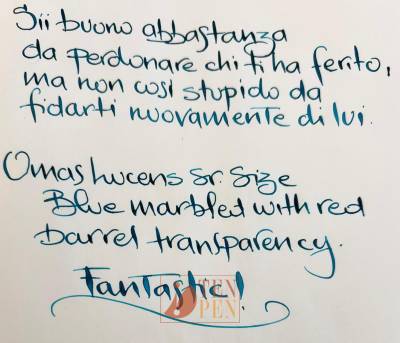 Sii buono abbastanza
da perdonare chi ti ha ferito,
ma non così stupido da
fidarti nuovamente di lui.
Omas Lucens Sr. Size
Blue marbled with red
barrel transparency.
Fantastic!
STEN
PEN